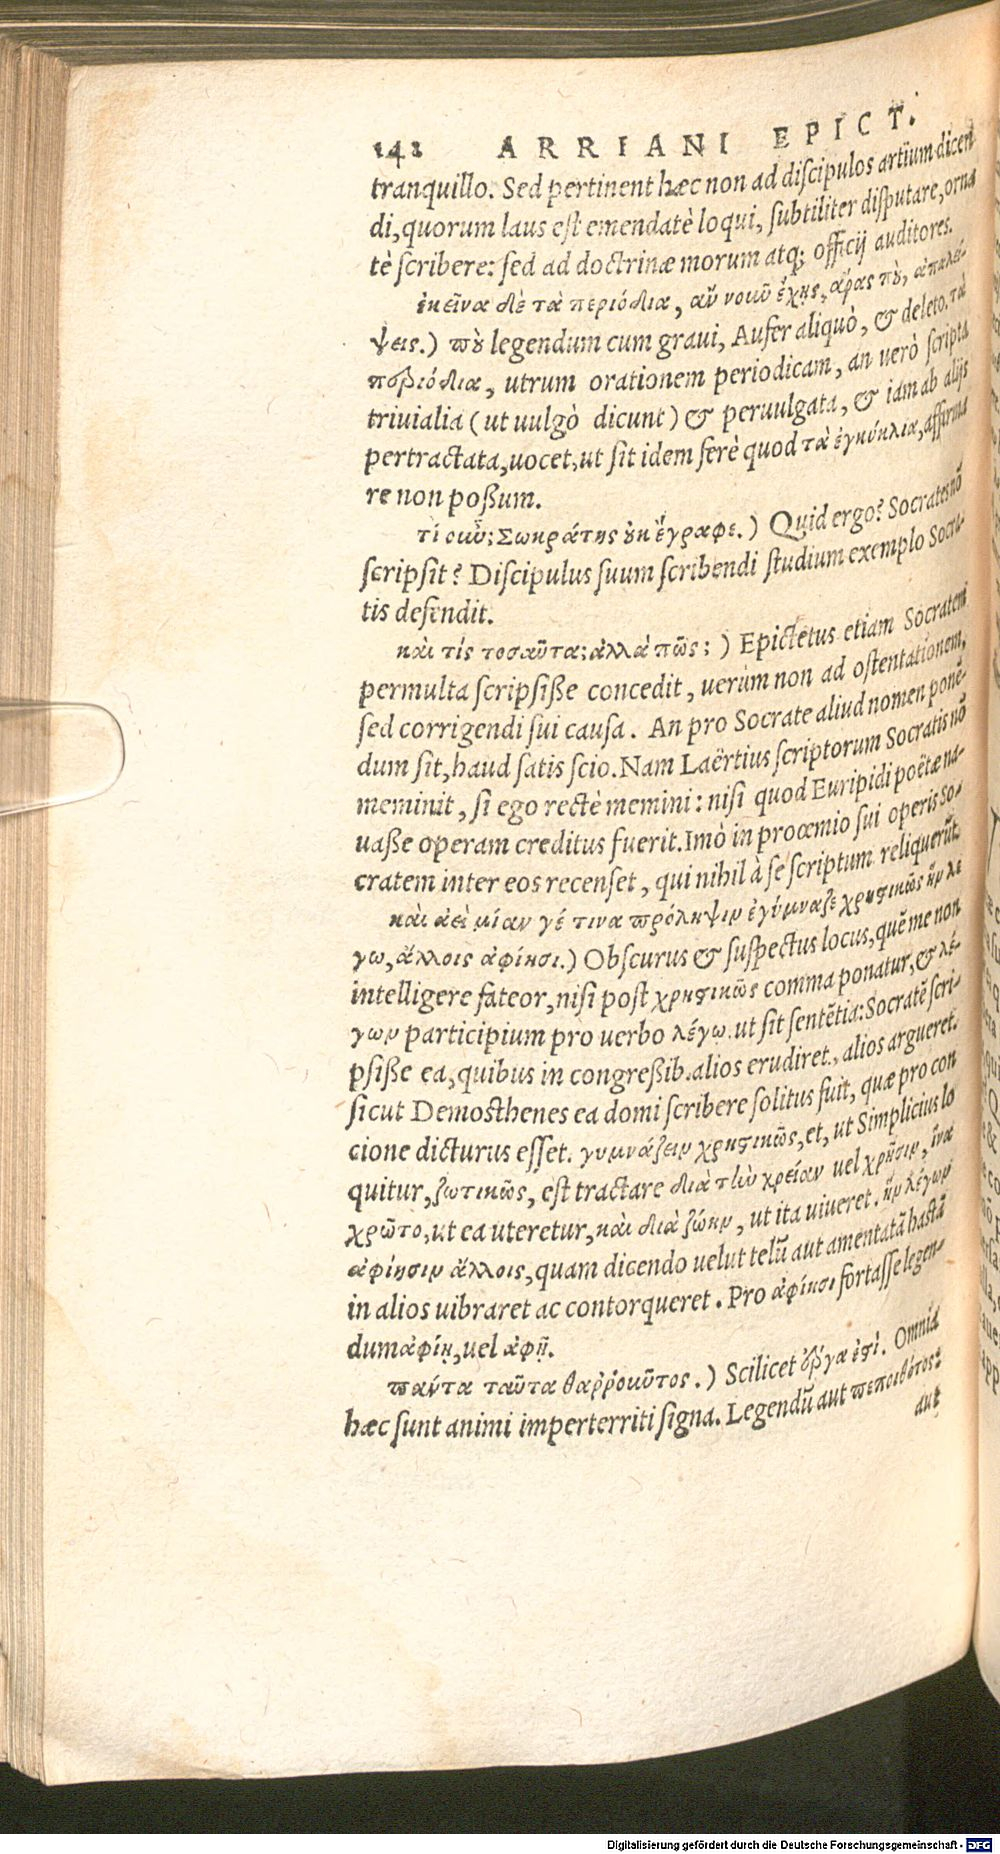 142 ARRIANI EPICT.
tranquillo. Sed pertinent hæc non ad discipulos artium dicen
di, quorum laus est emendatè loqui, subtiliter disputare, orna
tè scribere: sed ad doctrinæ morum atq; officij auditores.
ἐκεῖνα δὲ τὰ περιόδια, ἂν νοῦν ἔχῃς, ἄρας πὺ, ἀπαλεί-
ψεις.) πὺ legendum cum graui, Aufer aliquò, & deleto. τὰ
περιόδια, utrum orationem periodicam, an uerò scripta
triuialia (ut uulgò dicunt) & peruulgata, & iam ab alijs
pertractata, uocet, ut sit idem ferè quod τὰ ἐγκύκλια, affirma
re non poßum.
τί οὖν; Σωκράτης ȣκ ἔγραφε.) Quid ergo? Socrates nō
scripsit? Discipulus suum scribendi studium exemplo Socra-
tis defendit.
καὶ τίς τοσαῦτα; ἀλλὰ πῶς; ) Epictetus etiam Socratem
permulta scripsiße concedit, uerùm non ad ostentationem,
sed corrigendi sui causa. An pro Socrate aliud nomen ponē-
dum sit, haud satis scio. Nam Laërtius scriptorum Socratis nō
meminit, si ego rectè memini: nisi quod Euripidi poëtæ na-
uaße operam creditus fuerit. Imò in proœmio sui operis So-
cratem inter eos recenset, qui nihil à se scriptum reliquerūt.
καὶ ἀεὶ μίαν γέ τινα πρόληψιν ἐγύμναζε χρηστικῶς ἣν λέ
γω, ἄλλοις ἀφίησι.) Obscurus & suspectus locus, quē me non
intelligere fateor, nisi post χρηστικῶς comma ponatur, & λέ-
γων participium pro uerbo λέγω. ut sit sentētia: Socratē scri-
psiße ea, quibus in congreßib. alios erudiret, alios argueret.
sicut Demosthenes ea domi scribere solitus fuit, quæ pro con
cione dicturus esset. γυμνάζειν χρηστικῶς, et, ut Simplicius lo
quitur, ζωτικῶς, est tractare διὰ τὴν χρείαν uel χρῆσιν, ἵνα
χρῶτο, ut ea uteretur, καὶ διὰ ζώην, ut ita uiueret. ἣν λέγων
ἀφίησιν ἄλλοις, quam dicendo uelut telū aut amentatā hastā
in alios uibraret ac contorqueret. Pro ἀφίησι fortasse legen-
dum ἀφίῃ, uel ἀφῇ.
πάντα ταῦτα θαῤῥοῦντος.) Scilicet ἔργα ἐστί. Omnia
hæc sunt animi imperterriti signa. Legendū aut πεποιθότος:
aut
Digitalisierung gefördert durch die Deutsche Forschungsgemeinschaft - DFG